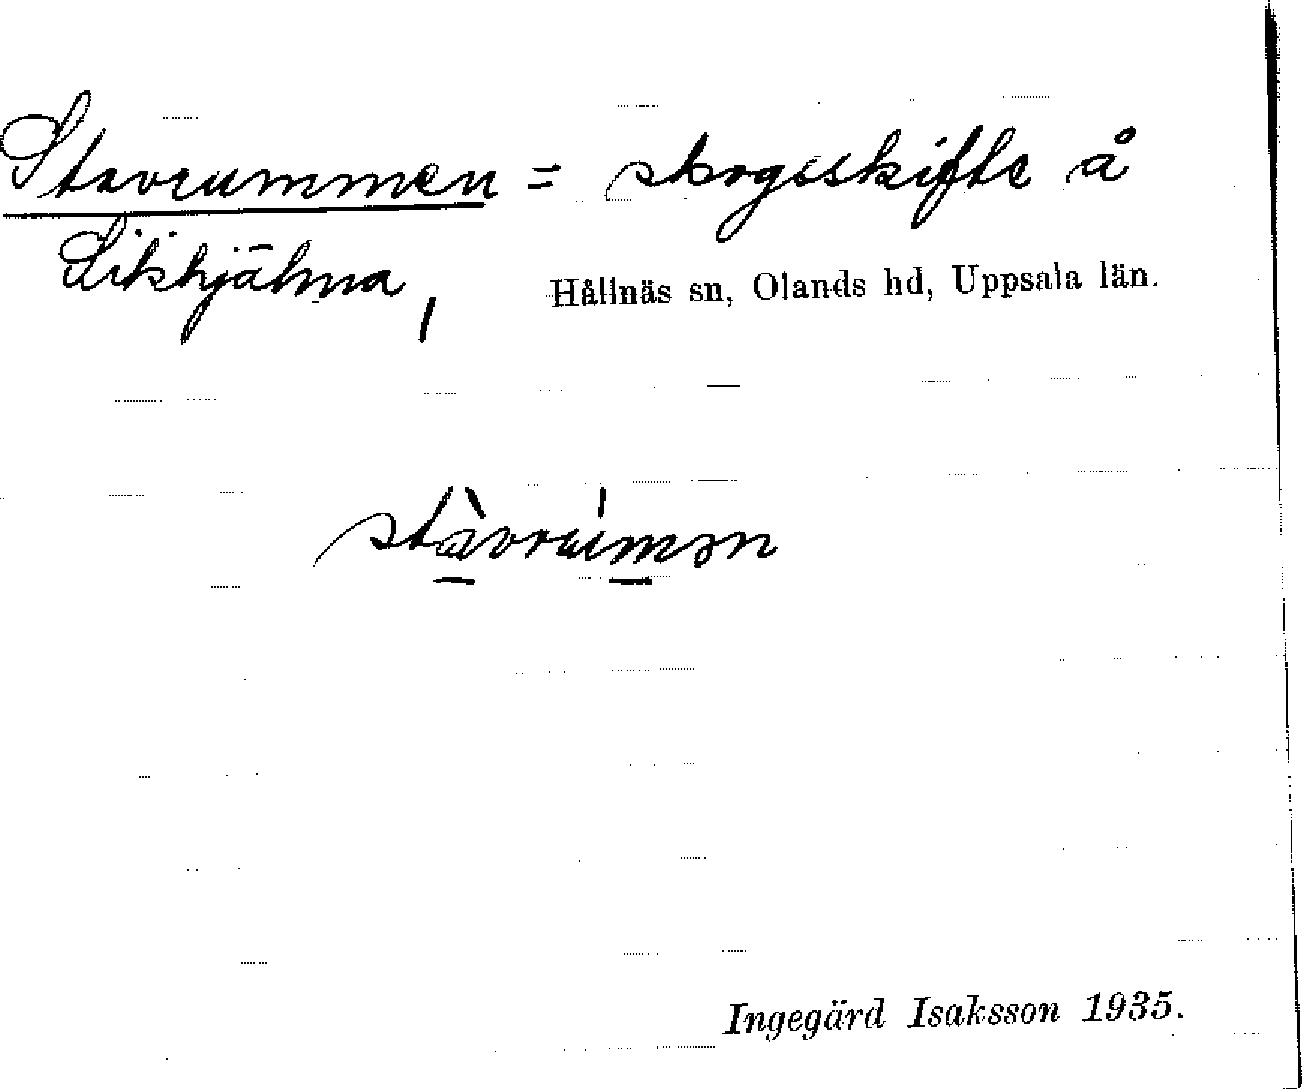 Stavrummen = skogsskifte å
Sikhjälma, Hållnäs sn, Olands hd, Uppsala län.
stàvrúmən
Ingegärd Isaksson 1935.